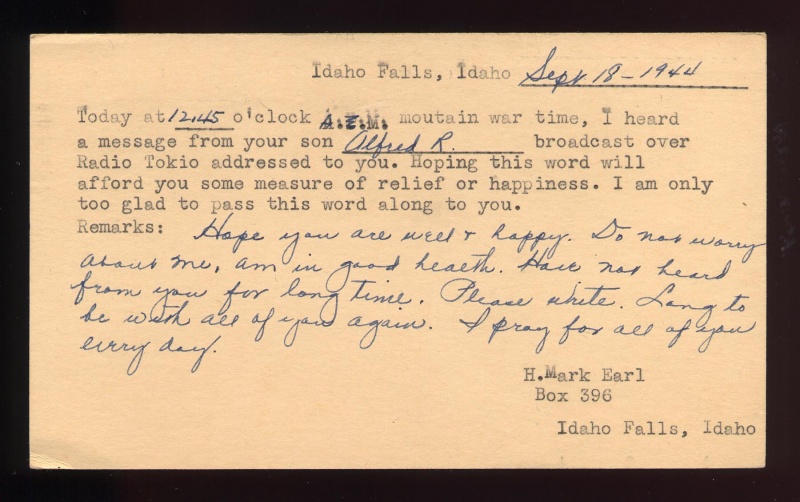 Idaho Falls, Idaho Sept 18-1944
Today at 12.45 o'clock A.M. moutain war time, I heard
a message from your son Alfred R. broadcast over
Radio Tokio addressed to you. Hoping this word will
afford you some measure of relief or happiness. I am only
too glad to pass this word along to you.
Remarks: Hope you are well & happy. Do not worry
about me, am in good health. Have not heard
from you for long time. Please write. Long to
be with all of you again. I pray for all of you
every day.
H.Mark Earl
Box 396
Idaho Falls, Idaho